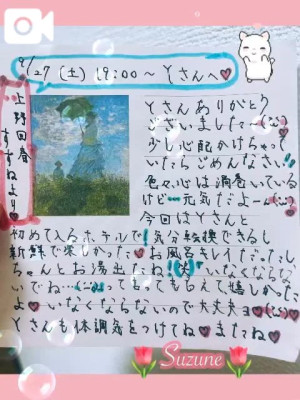 9/27(土)19:00〜Yさんへ♡
上野回春
すずねより♡
Yさんありがとう
ございました〜(
少し心配かけちゃって
いたらごめんなさい!!
色々心は渦巻いている
けど…元気だよー(
今回はYさんと
初めて入るホテルで!気分転換できるし
新鮮で楽しかった♡お風呂もキレイだったし
ちゃんとお湯出たね!(笑)いなくならな
いでね…って言ってもらえて嬉しかった
よ♡いなくならないので大丈夫ヨ♡(
Yさんも体調気をつけてね♡またね♡
Suzune